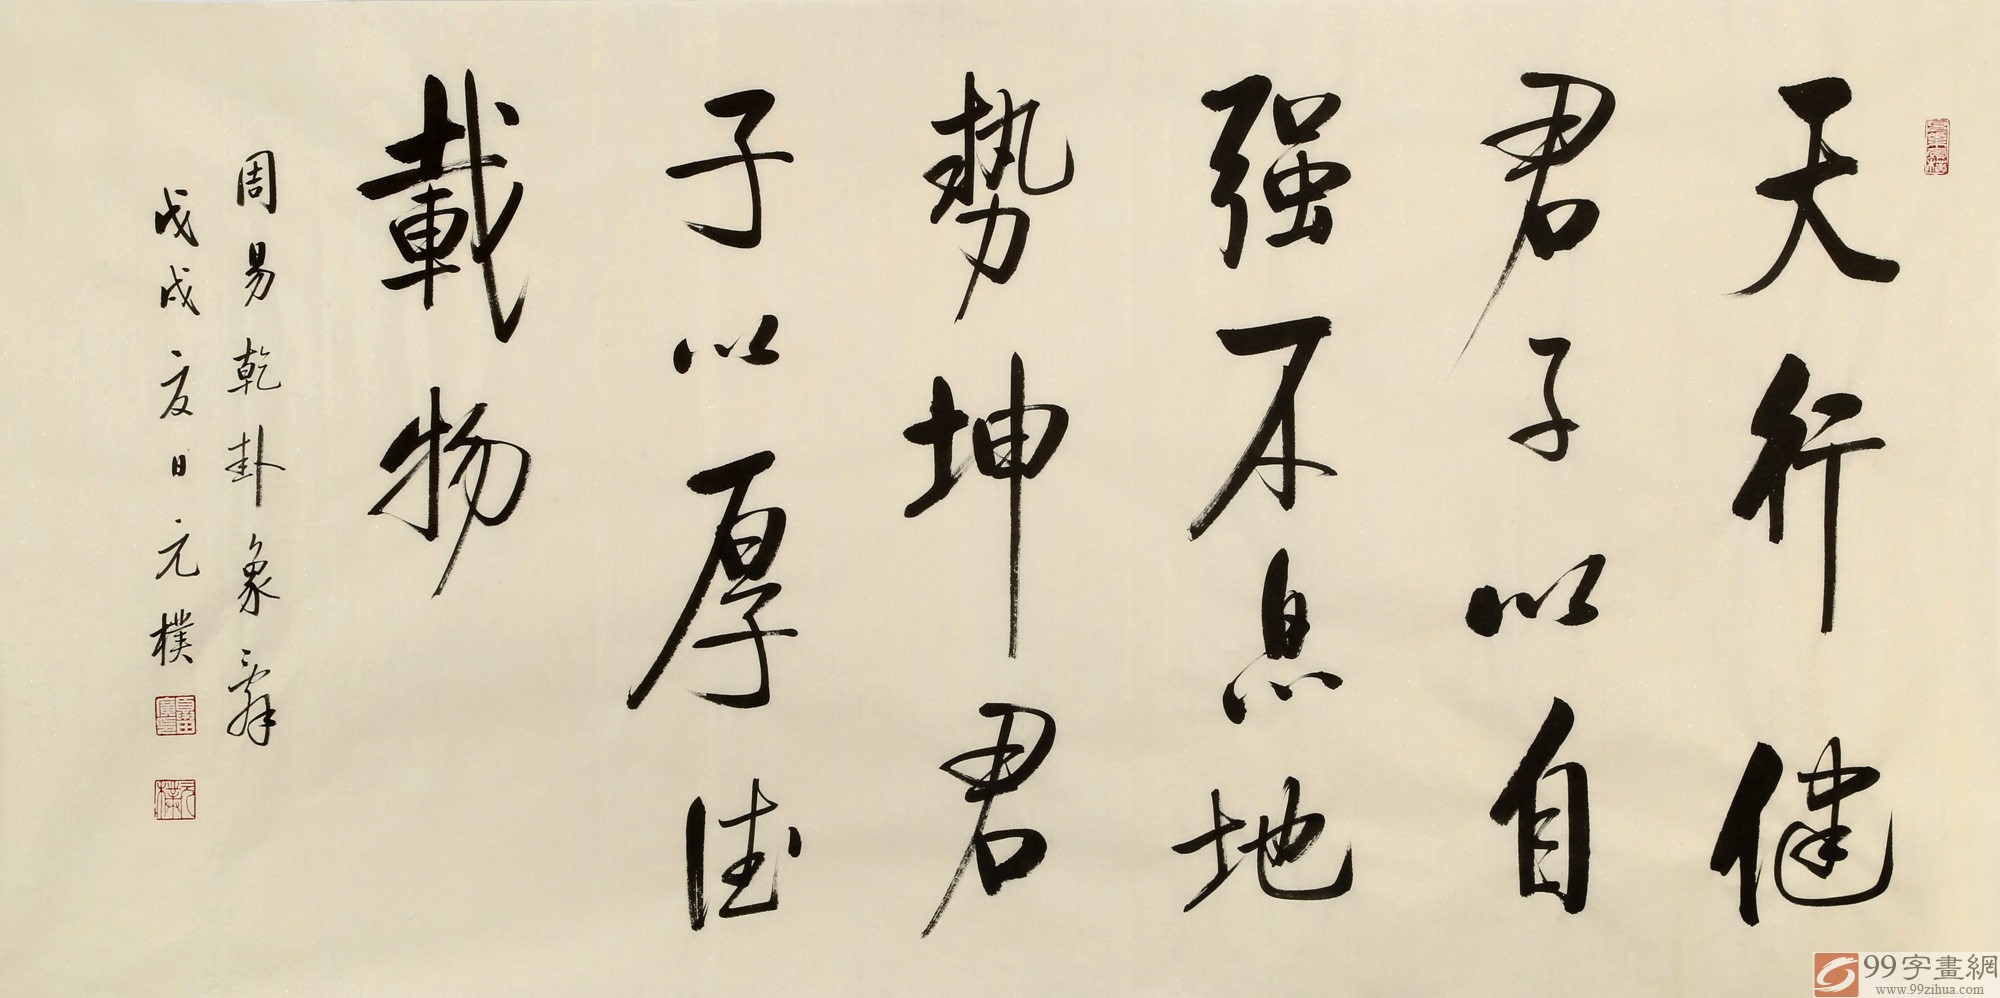 天行健
君子以自
强不息地
势坤君
子以厚德
載物
周易乾卦象辭
戊戌夏日元樸
99字畫網
www.99zihua.com